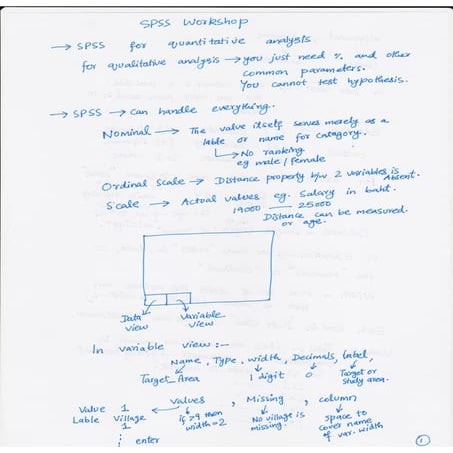 SPSS Workshop
→ SPSS for quantitative analysis
for qualitative analysis → you just need %. and other
common parameters.
You cannot test hypothesis.
→ SPSS → can handle everything.
Nominal → The value itself serves merely as a
lable or name for category.
→ No ranking
eg male / Female
Ordinal Scale → Distance property b/w 2 variables is
Absent.
Scale → Actual values eg. Salary in baht.
19000 — 25000
Distance can be measured.
or age.
Data view
Variable view
In variable view :-
Name, Type, width, Decimals, label,
Target_Area 1 digit 0 Target or
study area.
Values, Missing, column
Value 1
Lable Village
1
enter
if >9 then
width=2
No village is
missing.
space to
cover name
of var. width
1